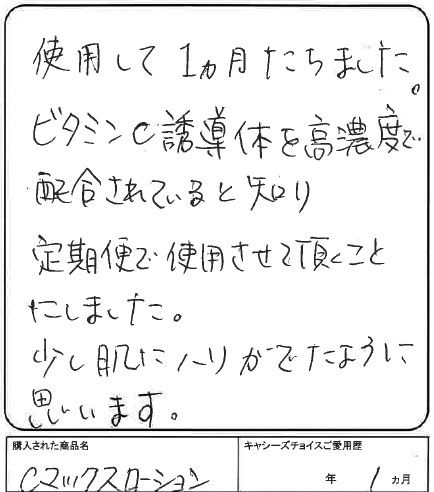 使用して1ヵ月たちました。
ビタミンC誘導体を高濃度で
配合されていると知り
定期便で使用させて頂くこと
にしました。
少し肌にハリがでたように
思います。
購入された商品名
キャシーズチョイスご愛用歴
Cマックスローション
年 1 ヵ月